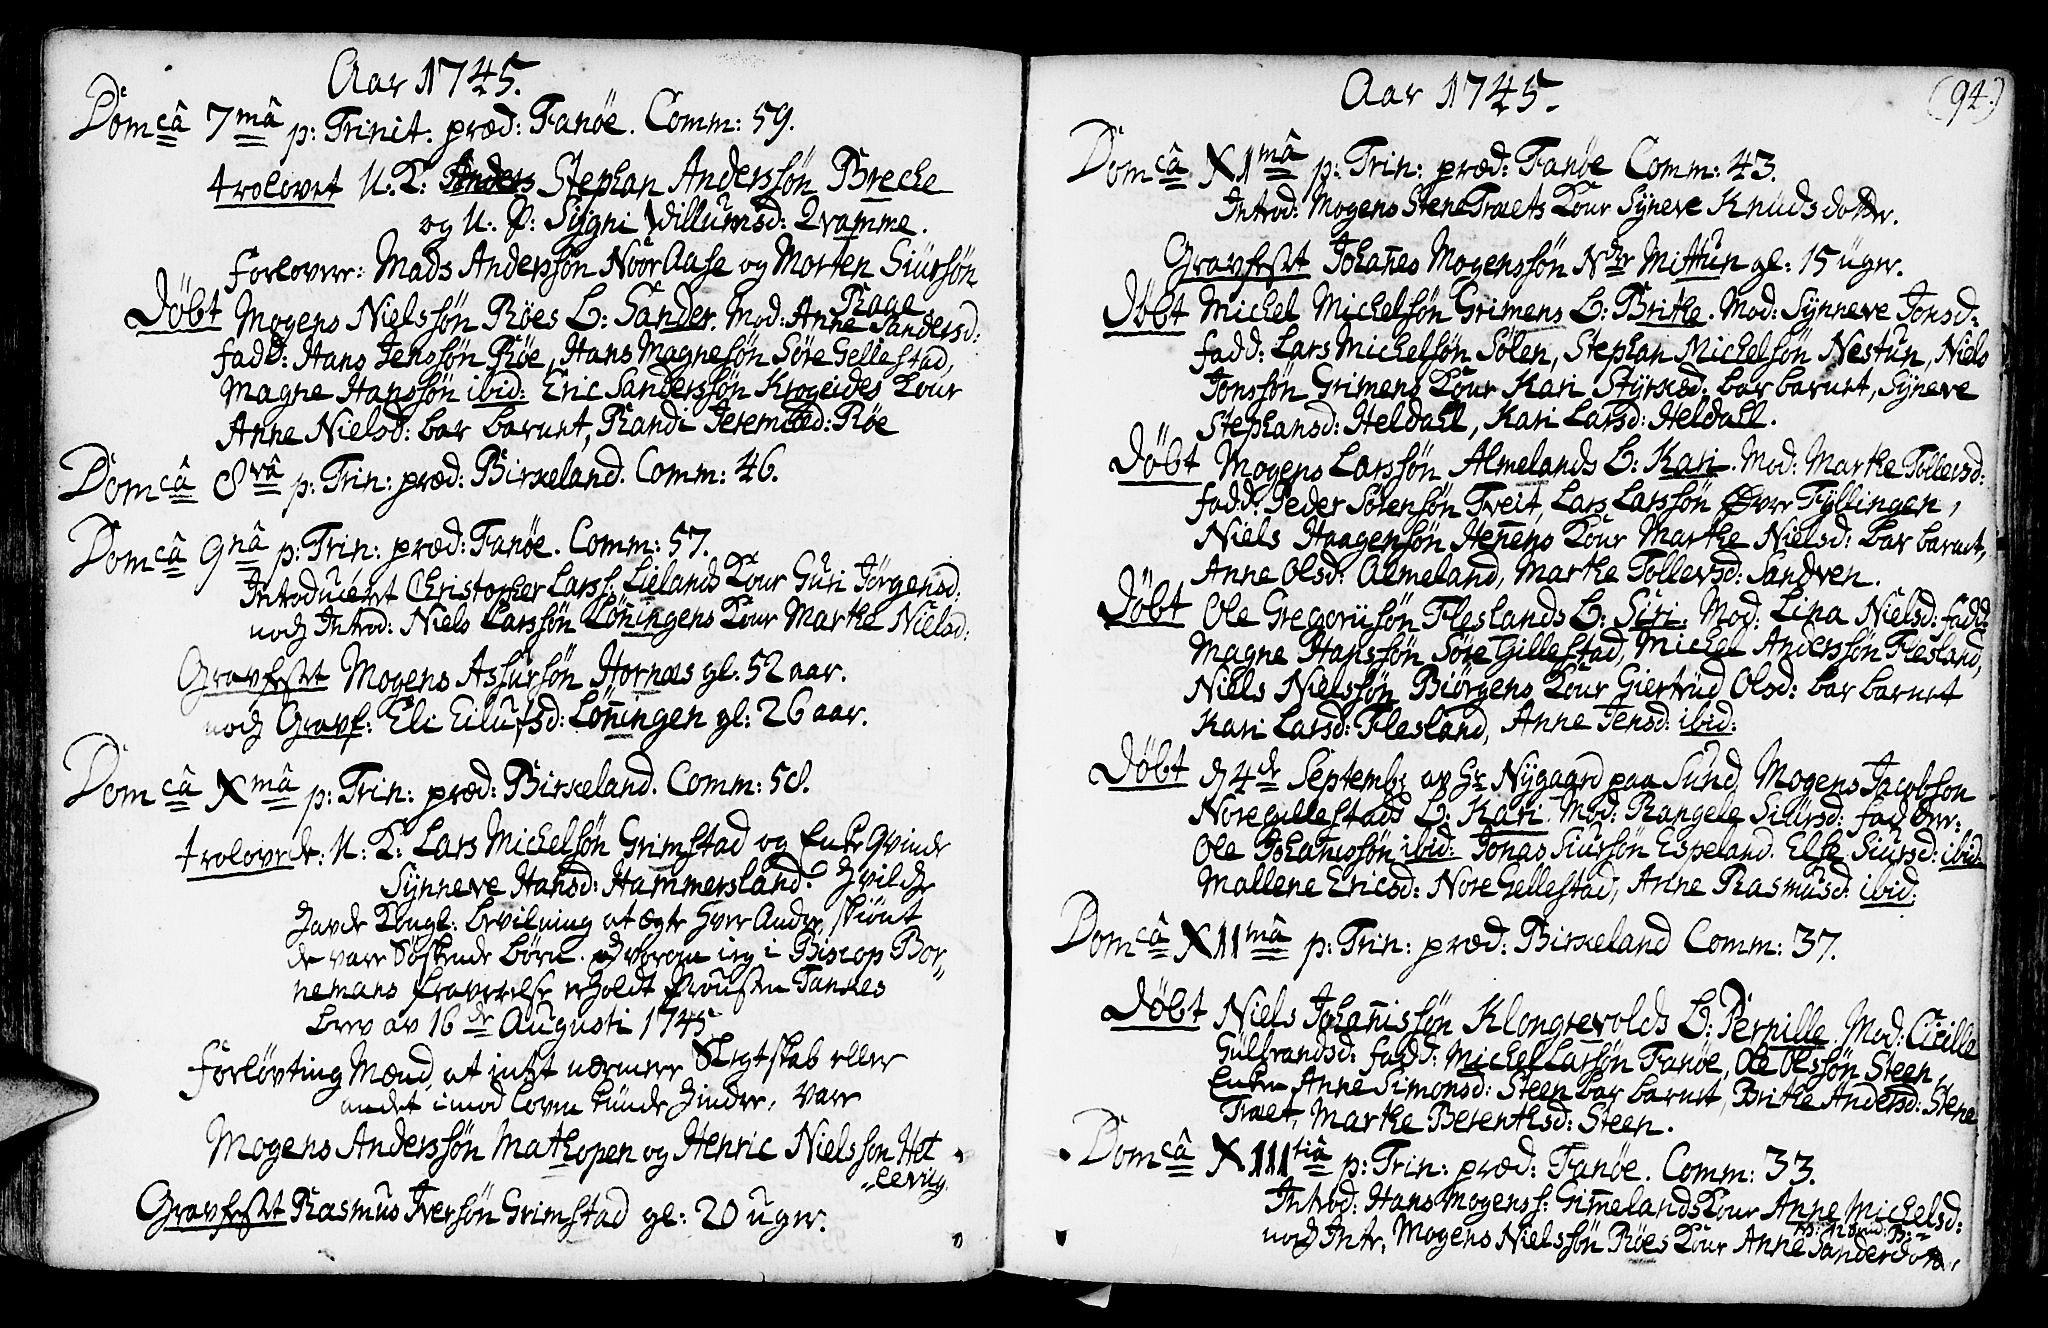 Aar 1745.
Domcâ 7mâ p: Trinit. præd: Fanöe. Comm: 59.
trolovet U. K: Anders Stephan Anderssøn Breche
og U. P: Sygni Willumsd: Qvamme.
Forlovere: Mads Anderssøn NoorAase og Morten Siursøn Raae
Döbt Mogens Nielssøn Röes B: Sander. Mod: Anne Sandersd:
fadd: Hans Jenssøn Röe, Hans Magnesøn Söre Gellestad,
Magne Hanssøn ibid: Eric Sanderssøn Krogeides Kone
Anne Nielsd: bar barnet, Randi Jeremiæd: Röe
Domcâ 8vâ p: Trin: præd: Birkeland. Comm: 46.
Domcâ 9nâ p: Trin: præd: Fanöe. Comm: 57.
Introduceret Christopher Larss: Lielands Kone Guri Jörgensd:
nock Introd: Niels Larssøn Löningens Kone Marthe Nielsd:
Gravfestet Mogens Assursøn Hornæs gl: 52 aar.
nock Gravf: Eli Eilufsd: Löningen gl: 26 aar.
Domcâ Xmâ p: Trin: præd: Birkeland. Comm: 58.
trolovede: U. K: Lars Michelsøn Grimstad og Enke Qvinde
Synneve Hansd: Hammersland. hvilche
havde Kongl: bevilning at ægte hver Andre, skiönt
de vare Söskende börn. hvorom ieg i Biscop Bor-
nemans fraværelse erholdt Provsten Tanches
brev av 16de Augusti 1745.
Forlöfting Mænd, at intet nærmere Slegtskab eller
andet imod loven kunde hindre, vare
Mogens Anderssøn Mathopen og Henric Nielssøn Het
levig.
Gravfestet Rasmus Iversøn Grimstad gl: 20 uger.
Aar 1745.
(94.)
Domcâ XImâ p: Trin: præd: Fanöe Comm: 43.
Introd: Mogens SteneTræets Kone Syneve Knudsdotter.
Gravfestet Johanes Mogenssøn Ndre Mittun gl: 15 uger.
Döbt Michel Michelsøn Grimens B: Brithe. Mod: Synneve Jonsd:
fadd: Lars Michelsøn Sölen, Stephan Michelsøn Nestun, Niels
Jonssøn Grimens Kone Kari Styrksd: bar barnet, Syneve
Stephansd: Heldahl, Kari Larsd: Heldahl.
Döbt Mogens Larssøn Almelands B: Kari. Mod: Marthe Tollevsd:
fadd: Peder Sörensøn Tveit, Lars Larssøn Övre Fyllingen,
Niels Haagensøn Henens Kone Marthe Nielsd: bar barnet,
Anne Olsd: Almeland, Marthe Tollevsd: Sandven.
Döbt Ole Gregoriisøn Fleslands B: Siri. Mod: Lina Nielsd: fadd:
Magne Hanssøn Söre Gillestad, Michel Anderssøn Flesland,
Niels Nielssøn Biörgens Kone Giertrud Olsd: bar barnet
Kari Larsd: Flesland, Anne Jensd: ibid:
Döbt d 4de Septembr av Hr Nygaard paa Sund, Mogens Jacobsøn
Noregillestads B: Kari. Mod: Rangele Siursd: fadder:
Ole Johanissøn ibid: Jonas Siursøn Espeland. Else Siursd: ibid:
Mallene Ericsd: Nore Gellestad, Anne Rasmusd: ibid:
Domcâ XIImâ p: Trin: præd: Birkeland Comm: 37.
Döbt Niels Johanissøn Klongrevolds B: Pernille. Mod: Cicille
Gulbrandsd: fadd: Michel Larsøn Fanöe, Ole Olssøn Steen,
Enken Anne Simonsd: Steen bar barnet, Brithe Andersd: Stene
Træet, Marthe Berenthsd: Steen.
Domcâ XIIItiâ p: Trin: præd: Fanöe. Comm: 33.
Introd: Hans Mogenss: Gimelands Kone Anne Michelsd:
nock Intr. Mogens Nielssøn Röes Kone Anne Sanderdotter.